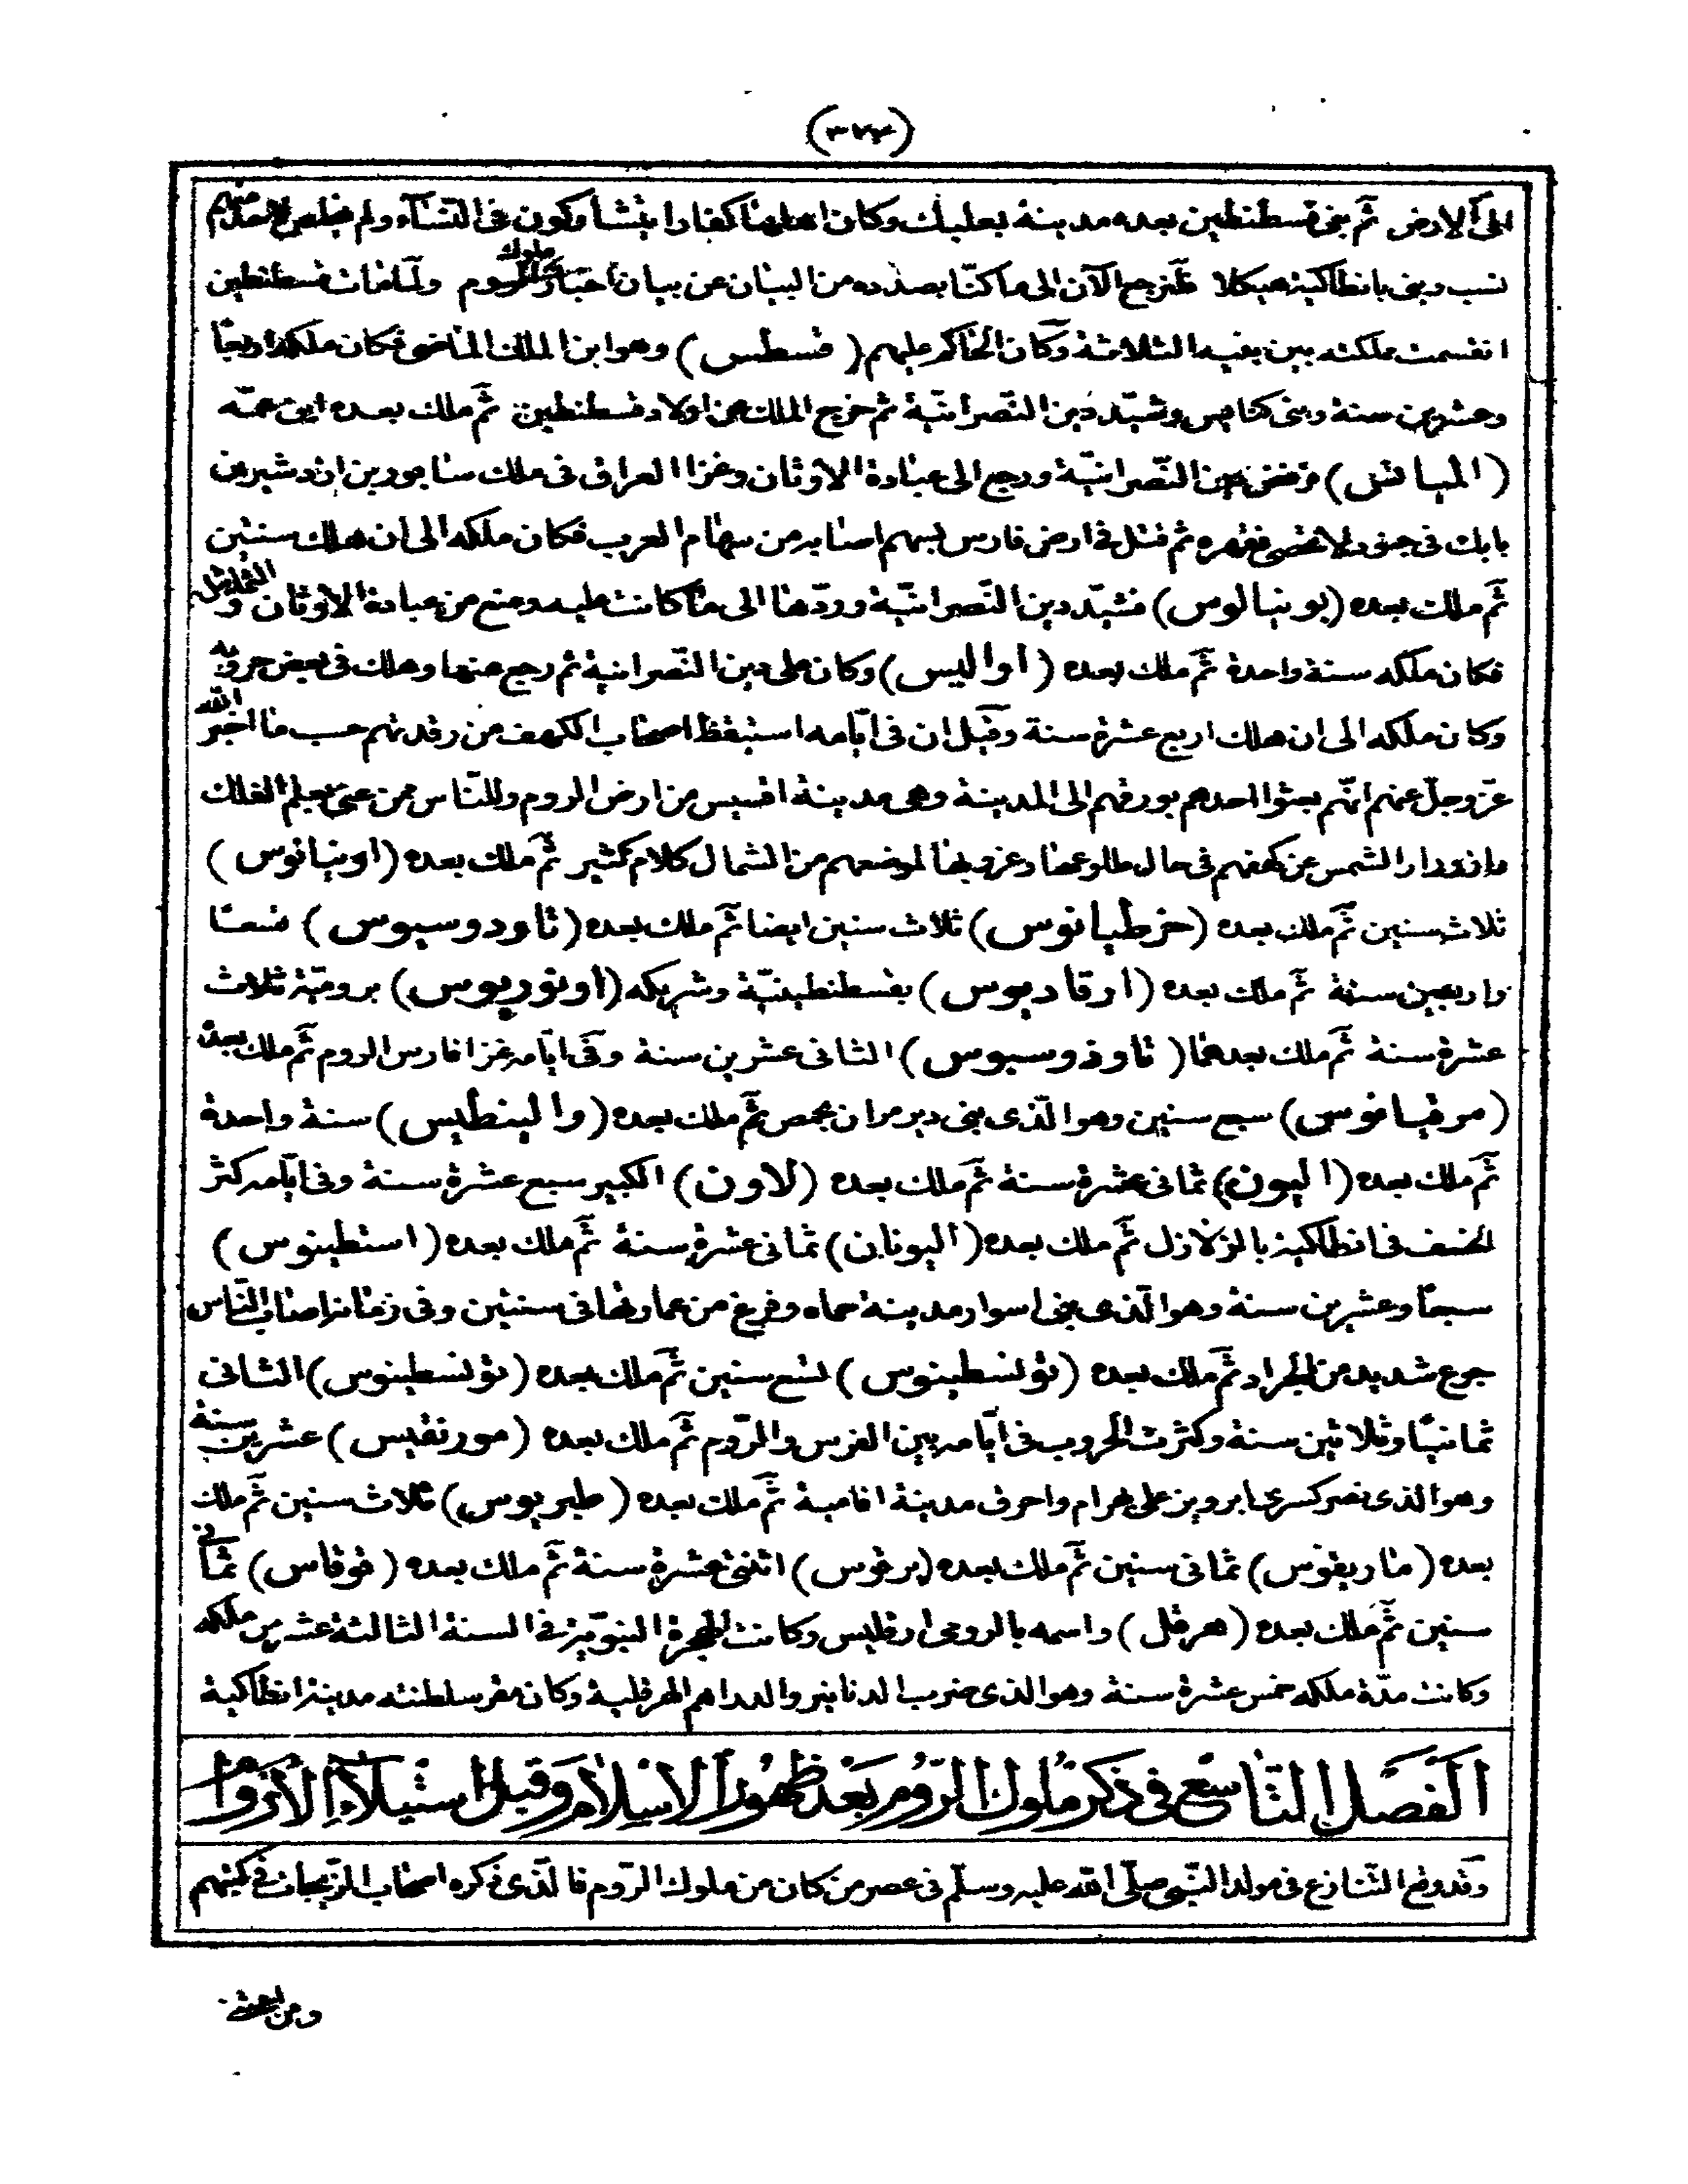 (٣٢٤)
الى الارض ثم بنى قسطنطين بعده مدينة بعلبك وكان اهلها كفارا يتشاركون فى النساء ولم يخلص لاحد منهم
نسب وبنى بانطاكية هيكلا فلنرجع الآن الى ما كنّا بصدده من البيان عن بيان اخبار ملوك الروم ولمّا مات قسطنطين
انقسمت مملكته بين بنيه الثلاثة وكان الحاكم عليهم (قسطس) وهو ابن الملك الماضى فكان ملكه اربعًا
وعشرين سنة وبنى كنايس وشيّد دين النّصرانيّة ثم خرج الملك من اولاد قسطنطين ثمّ ملك بعده ابن عمّه
(الميانس) فرفض دين النّصرانيّة ورجع الى عبادة الاوثان وغزا العراق فى ملك سابور بن اردشير بن
بابك فى جنود لا تحصى فقهره ثم قتل فى ارض فارس بسهم اصابه من سهام العرب فكان ملكه الى ان هلك سنتين
ثمّ ملك بعده (بونيالوس) فشيّد دين النّصرانيّة وردّها الى ما كانت عليه ومنع من عبادة الاوثان و التماثيل
فكان ملكه سنة واحدة ثمّ ملك بعده (اواليس) وكان على دين النّصرانية ثم رجع عنها وهلك فى بعض حروبه
وكان ملكه الى ان هلك اربع عشرة سنة وقيل ان فى ايّامه استيقظ اصحاب الكهف من رقدتهم حسب ما اخبر الله
عزّ وجلّ عنهم انّهم بعثوا احدهم بورقهم الى المدينة وهى مدينة افسيس من ارض الروم وللنّاس ممن عنى بعلم الفلك
وازورار الشمس عن كهفهم فى حال طلوعها وغروبها لموضعهم من الشمال كلام كثير ثمّ ملك بعده (اونيانوس)
ثلاث سنين ثمّ ملك بعده (خرطيانوس) ثلاث سنين ايضا ثمّ ملك بعده (ثاودوسيوس) تسعا
واربعين سنة ثمّ ملك بعده (ارقاديوس) بقسطنطينيّة وشريكه (اونوريوس) بروميّة ثلاث
عشرة سنة ثمّ ملك بعدهما (ثاوذوسيوس) الثانى عشرين سنة وفى ايّامه غزا فارس الروم ثمّ ملك بعده
(مرقيانوس) سبع سنين وهو الّذى بنى دير مران بحمص ثمّ ملك بعده (والينطيس) سنة واحدة
ثمّ ملك بعده (اليون) ثمانى عشرة سنة ثمّ ملك بعده (لاون) الكبير سبع عشرة سنة وفى ايّامه كثر
الخسف فى انطاكية بالزلازل ثمّ ملك بعده (اليونان) ثمانى عشرة سنة ثمّ ملك بعده (اسنطينوس)
سبعًا وعشرين سنة وهو الّذى بنى اسوار مدينة حماه وفرغ من عمارتها فى سنتين وفى زمانه اصاب النّاس
جوع شديد من الجراد ثمّ ملك بعده (نونسطينوس) تسع سنين ثمّ ملك بعده (نونسطينوس) الثانى
ثمانيًا وثلاثين سنة وكثرت الحروب فى ايّامه بين الفرس والرّوم ثمّ ملك بعده (مورنقيس) عشرين سنة
وهو الذى نصر كسرى ابرويز على بهرام واحرق مدينة افامية ثمّ ملك بعده (طبريوس) ثلاث سنين ثمّ ملك
بعده (ماريقوس) ثمانى سنين ثمّ ملك بعده (برغوس) اثنتى عشرة سنة ثمّ ملك بعده (فوقاس) ثمانى
سنين ثمّ ملك بعده (هرقل) واسمه بالرومى ارقليس وكانت الهجرة النبويّة فى السنة الثالثة عشر من ملكه
وكانت مدّة ملكه خمس عشرة سنة وهو الذى ضرب الدنانير والدراهم الهرقلية وكان مقر سلطنته مدينة انطاكية
الفَصْلُ التّاسِعُ فى ذكر مُلوك الرّوم بَعْدَ ظهُور الاسْلام وَقبل استيلاءِ الأَرْوام
وقد وقع التنازع فى مولد النّبى صلّى الله عليه وسلّم فى عصر من كان من ملوك الرّوم فالّذى ذكره اصحاب الزّيجات فى كتبهم